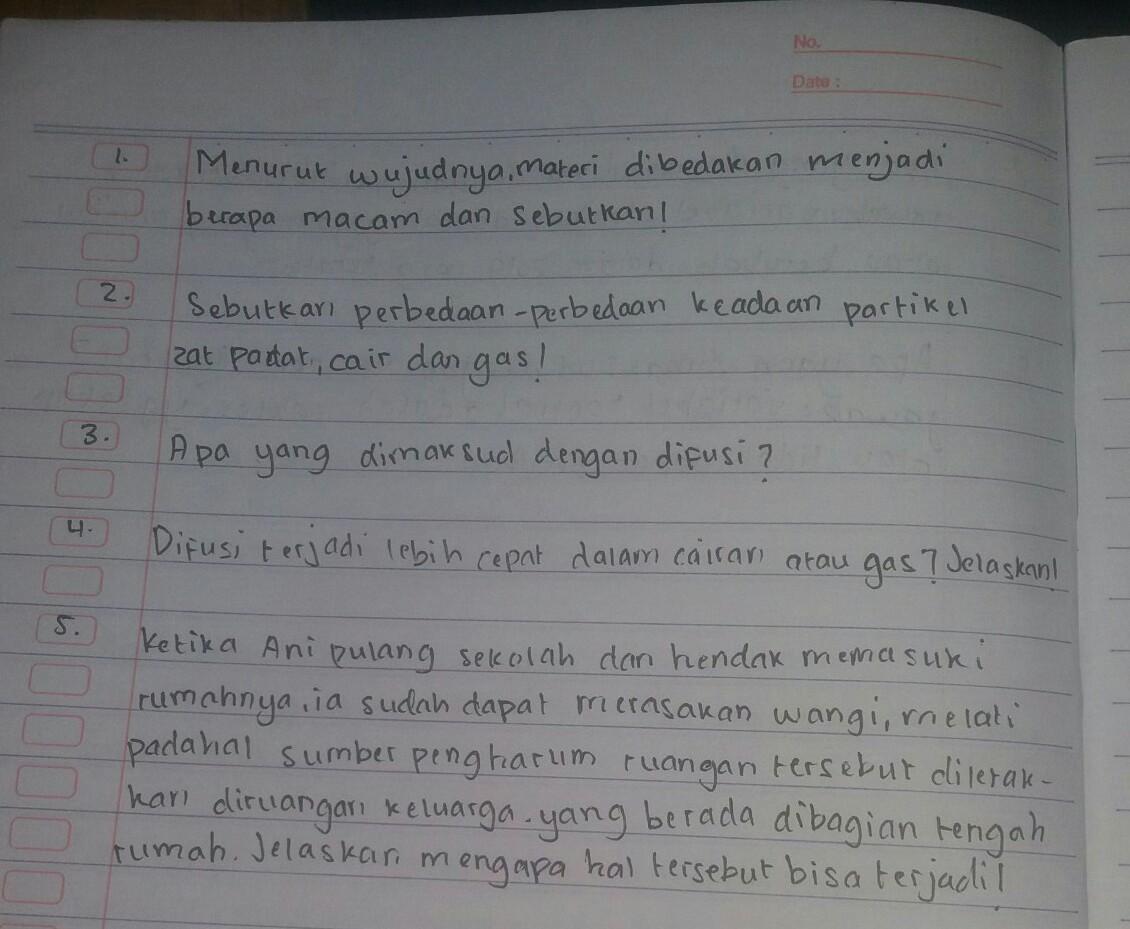 No.
Date :
1. Menurut wujudnya, materi dibedakan menjadi
berapa macam dan sebutkan!
2. Sebutkan perbedaan-perbedaan keadaan partikel
zat padat, cair dan gas!
3. Apa yang dimaksud dengan difusi?
4. Difusi terjadi lebih cepat dalam cairan atau gas? Jelaskan!
5. Ketika Ani pulang sekolah dan hendak memasuki
rumahnya, ia sudah dapat merasakan wangi, melati
padahal sumber pengharum ruangan tersebut diletak-
kan diruangan keluarga. yang berada dibagian tengah
rumah. Jelaskan mengapa hal tersebut bisa terjadi!